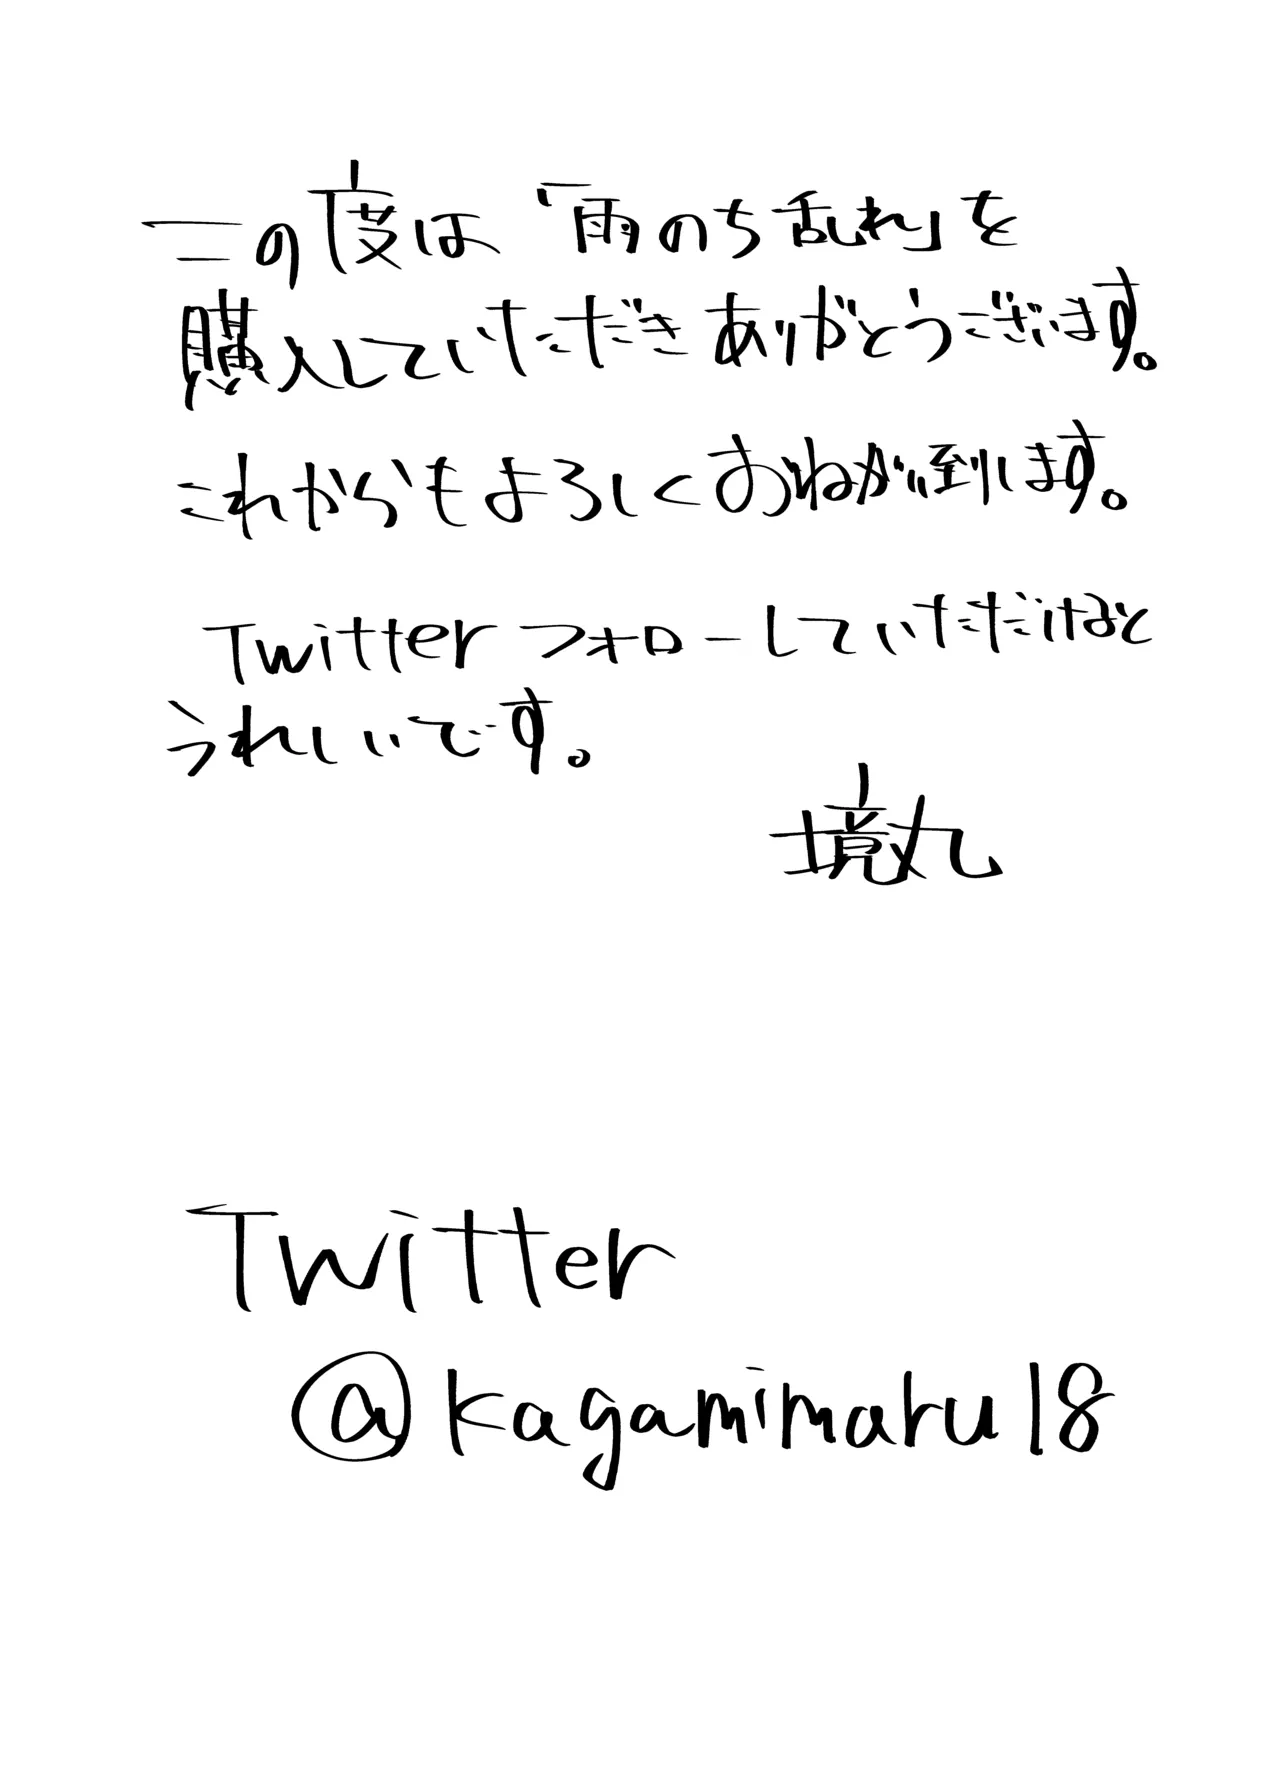 この度は「雨のち乱れ」を
購入していただきありがとうございます。
これからもよろしくおねがい到します。
Twitterフォローしていただけると
うれしいです。
境丸
Twitter
@kagamimaru18